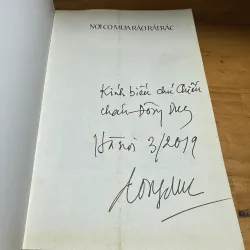 NƠI CÓ MƯA RÀO RẢI RÁC
Kính biếu chú Chiến
cháu Đồng Duc
Hà Nội 3/2019